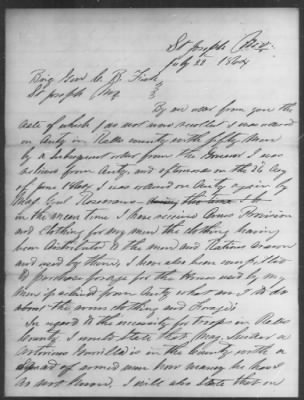 St Joseph Mo.
July 22 1864
Brig Genl C. B. Fisk
St Joseph Mo
By an order from you the
date of which I do not now recollect I was ordered
on duty in Ralls county with fifty men
by a subsequent order from the General I was
relieved from duty, and afterwards on the 26 day
of June 1864 I was ordered on duty again by
Maj Genl Rosecrans during this time I h
in the mean time I have received Arms Provision
and Clothing for my men the clothing having
been distributed to the men and Rations drawn
and used by them, I have also been compelled
to purchase forage for the horses used by my
men if relieved from duty what am I to do
about the arms clothing and Forage
In regard to the necessity for troops in Ralls
County I would state that Maj. a
Notorious Guerilla is in the County with a
squad of armed men how many he has
is not known. I will also state that on